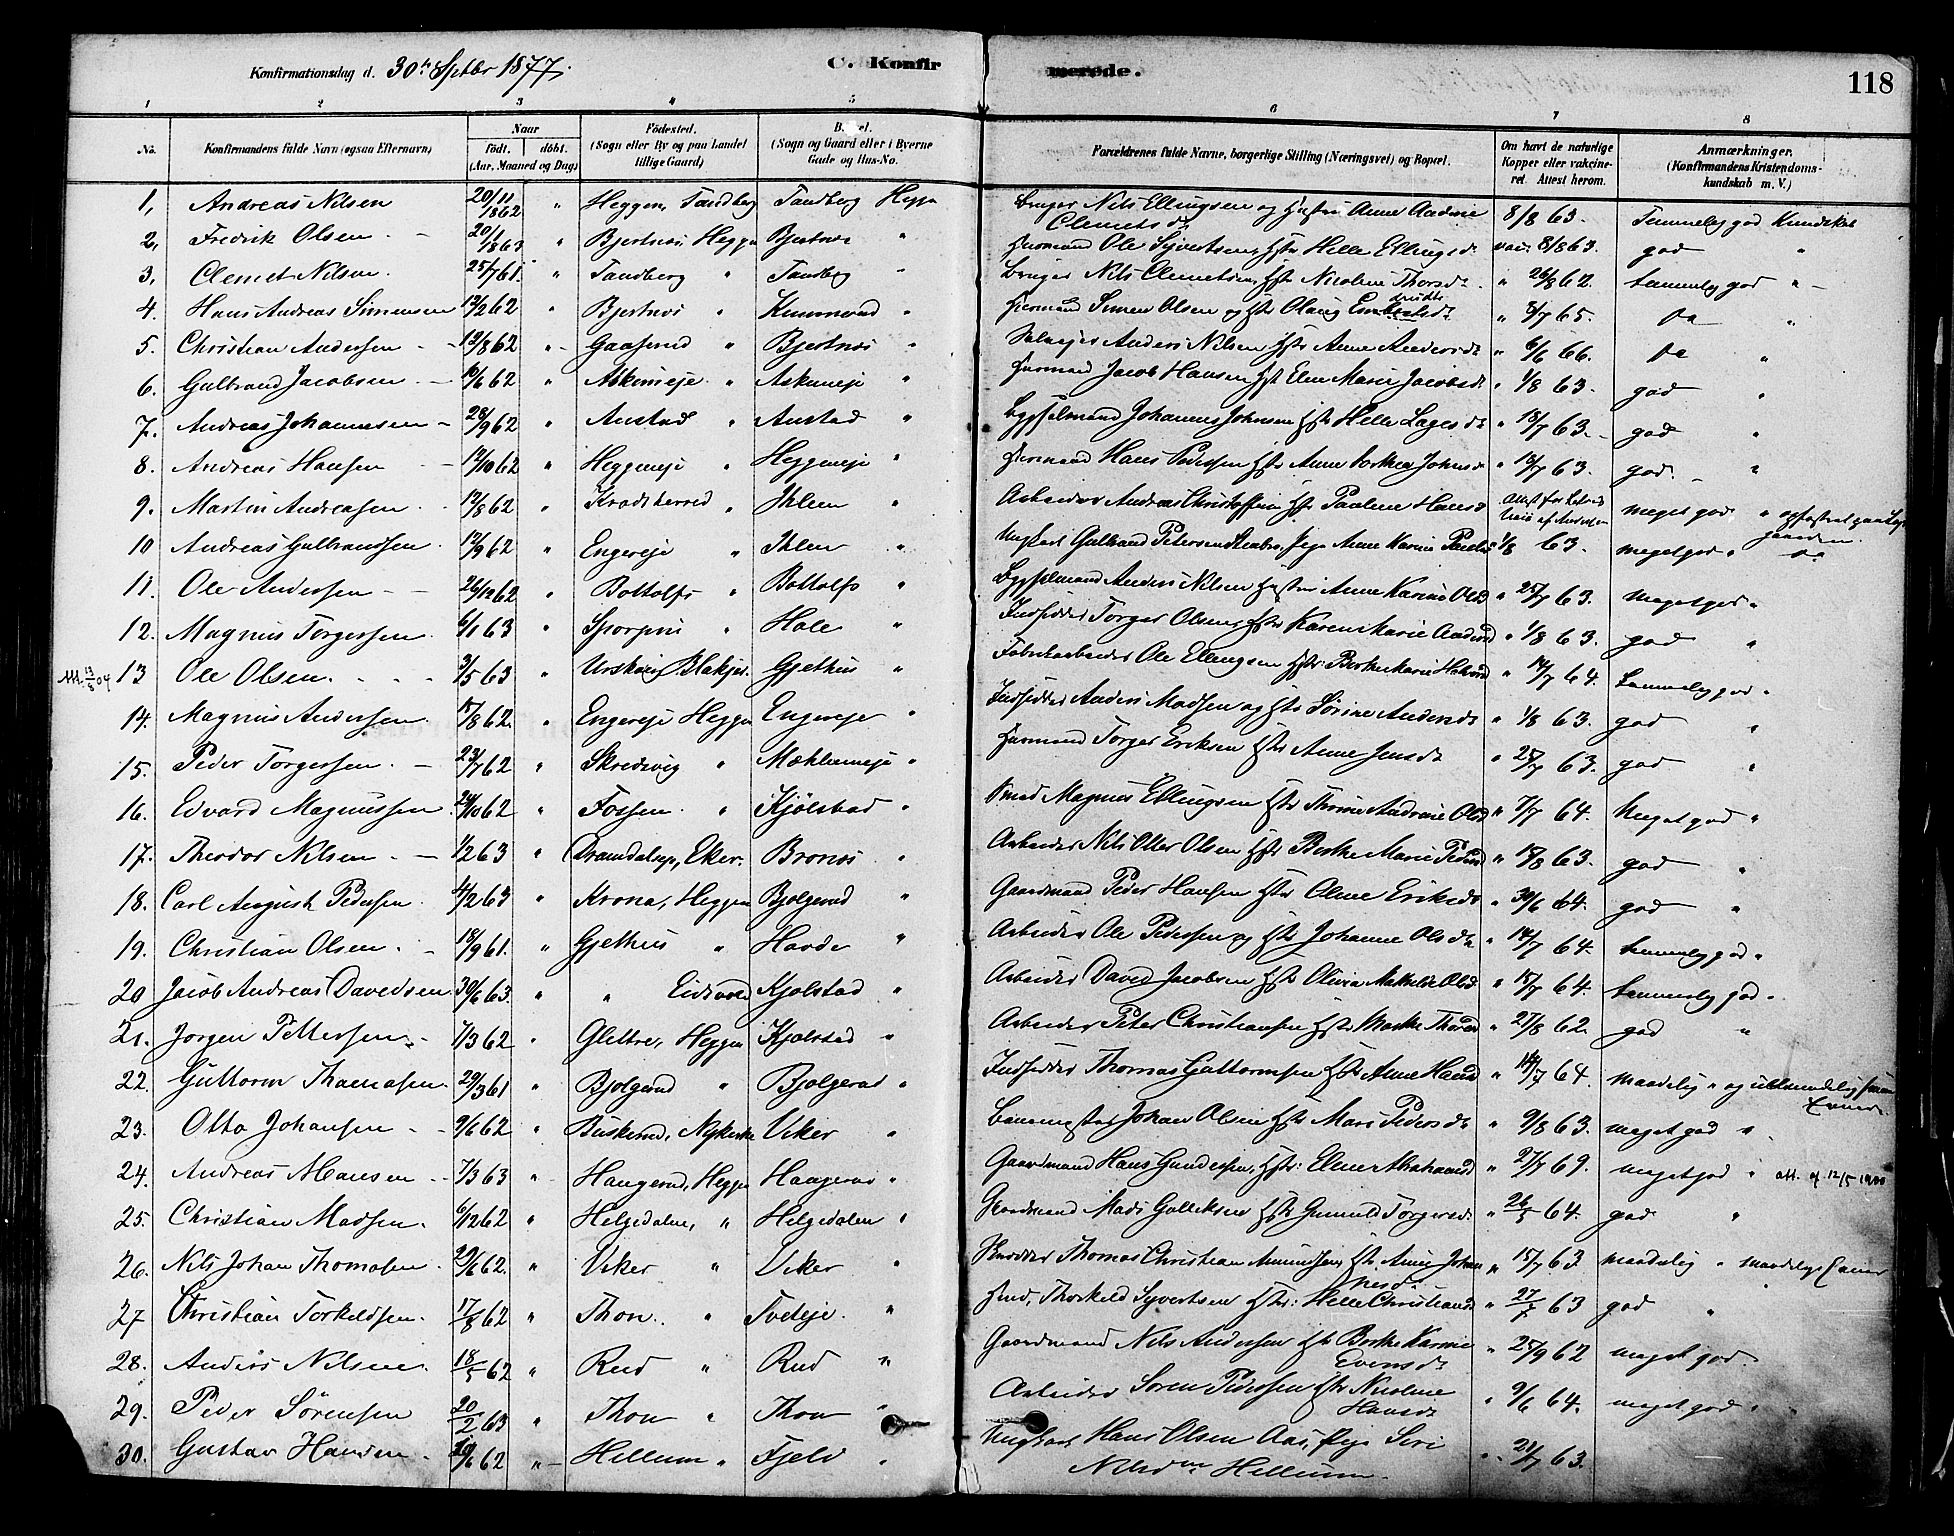 Konfirmationsdag d. 30te Septbr 1877.
C. Konfirmerede.
118
1 2 3 4 5 6 7 8
No.
Konfirmandens fulde Navn (ogsaa Efternavn)
Naar
födt. döbt.
(Aar, Maaned og Dag)
Födested.
(Sogn eller By og paa Landet
tillige Gaard)
(Sogn og Gaard eller i Byerne
Gade og Hus-No.
Forældrenes fulde Navne, borgerlige Stilling (Næringsvei) og Bopæl.
Om havt de naturlige
Kopper eller vakcine-
ret. Attest herom.
Anmærkninger.
(Konfirmandens Kristendoms-
kundskab m. V.)
1, Andreas Nilsen 20/11 1862 " Heggen, Tandberg Tandberg Heggen Bruger Nils Ellingsen og Hustru Anne Andrine 8/8 63. Temmelig god Kundskab
Clemetsdr
2, Fredrik Olsen 20/1 1863 " Bjertnæs Heggen Bjertnæs " Huusmand Ole Syvertsen, Hstr Helle Ellingsd. vac. 8/8 63. god "
3, Clemet Nilsen 25/7 61. " Tandberg " Tandberg " Bruger Nils Clemetsen, Hstr Nicoline Thorsdr " 26/8 62. temmelig god "
4. Hans Andreas Simensen 12/2 62 " Bjertnæs " " Huusmand Simen Olsen og Hstr Olaug " 3/7 65. do "
5. Christian Andersen 12/8 62 " Gaaserud " Bjertnæs " Selveier Anders Nilsen Hstr Anne Andersdr " 6/6 66. do "
6. Gulbrand Jacobsen 10/6 62 " Askimeje " Askimeje " Huusmand Jacob Hansen Hstr Elen Marie Jacobsdr " 1/8 63. god "
7. Andreas Johannesen 28/9 62 " Anstad " Anstad " Bygselmand Johannes Johnsen Hstr Helle Lagesdr " 18/7 63. god "
8. Andreas Hansen 12/10 62 " Heggeneje " Heggeneje " Huusmand Hans Pedersen Hstr Anne Johnsdr " 18/7 63. god. "
9. Martin Andreasen 12/8 62 " Krødsherred Ihlen " Arbeider Andreas Christoffersen Hstr Pauline Hansd. Attest for meget god " opfostret paa
10 Andreas Gulbrandsen 12/9 62 " Engereje " Ihlen " Ungkarl Gulbrand Petersen Pige Anne Karine 1/8 63. meget god " do
11. Ole Andersen 26/12 62 " Bottolfs " Bottolfs " Bygselmand Anders Nilsen Hustru Anne Karine Olsd " 25/7 63. meget god "
12. Magnus Torgersen 6/1 63 " " Hole " Indsidder Torger Olsen, Hstr Karen Marie Andersd " 1/8 63. god "
13 Ole Olsen. 3/5 63 " Urskoug Gjethus " Fabrikarbeider Ole Ellingsen Hstr: Berthe Karine " 14/7 64. temmelig god "
14. Magnus Andersen 15/8 62. " Engereje Heggen Engereje " Indsidder Anders Madsen og Hstr Sørine Andersdr " 1/8 63. god "
15. Peder Torgersen. 23/7 62 " Skredsvig " Mæhlumeje " Huusmand Torger Eriksen Hstr Anne Jensdr " 25/7 63. god "
16. Edvard Magnussen 24/10 62 " Fossen. " Kjölstad " Smed Magnus Ellingsen Hstr Thrine Andrine Olsd " 7/7 64. Meget god "
17. Theodor Nilsen 1/2 63 " Eker. Bronæs " Arbeider Nils Otter Olsen Hstr Berthe Marie Pedersd " 15/8 63. god "
18. Carl August Pedersen 4/2 63 " Krona, Heggen Bjølgerud " Gaardmand Peder Hansen Hstr Olene Eriksdr " 30/6 64. god "
19. Christian Olsen 18/9 61. " Gjethus " Hovde " Arbeider Ole Pedersen og Hstr Johanne Olsdr " 14/7 64. temmelig god "
20 Jacob Andreas Davidsen 30/6 63. " " Eidsvold Kjølstad " Arbeider David Jacobsen Hstr Olivia Mathilde Olsd " 15/7 64. temmelig god "
21. Jørgen Pettersen 7/3 62 " Glettre, Heggen Kjølstad " Arbeider Peter Christiansen Hstr Marthe " 27/8 62. god "
22. Guttorm Thomasen 29/3 61 " Bjølgerud " Bjølgerud " Indsidder Thomas Guttormsen Hstr Anne Hansd " 14/7 64. maadelig "
23. Otto Johansen 9/6 62 " Buskerud, Nykirke Viker " Johan Olsen Hstr Mari Pedersdr " 9/8 63. meget god "
24. Andreas Hansen 7/3 63 " Haugerud, Heggen Haugerud " Gaardmand Hans Gundersen, Hstr: Elene " 27/7 69. meget god " att. af. 12/5 1900
25. Christian Madsen. 6/12 62 " Helgedalen, " Helgedalen " Gaardmand Mads Gulliksen Hstr Gunild Torgersd. " 26/5 64. god "
26. Nils Johan Thomasen. 29/6 62. " Viker " Viker " Thomas Christian Amundsen, Hstr Anne Johan " 15/7 63. maadelig " maadelige Evner
nesdr
27 Christian Torkeldsen. 17/8 62 " Thon. " Tveteje. " Thorkeld Syvertsen Hstr: Helle Christiansd " 27/7 63 god "
28. Anders Nilsen 18/5 62 " Rud " Rud " Gaardmand Nils Andersen Hstr Berthe Karine " 25/9 62 meget god.
Evensdr
29. Peder Sørensen 20/2 63 " Thon " Thon " Arbeider Søren Pedersen Hstr Nicoline " 9/6 64. meget god "
Hansdr
30. Gustav Hansen 62 " Hellum " Fjeld " Ungkarl Hans Olsen Aas, Pige Siri " 21/7 63.
Nilsdr Hellum.